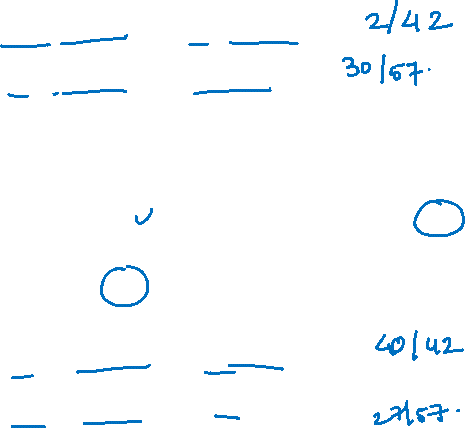 2/42
30/57.
40/42
27/57.